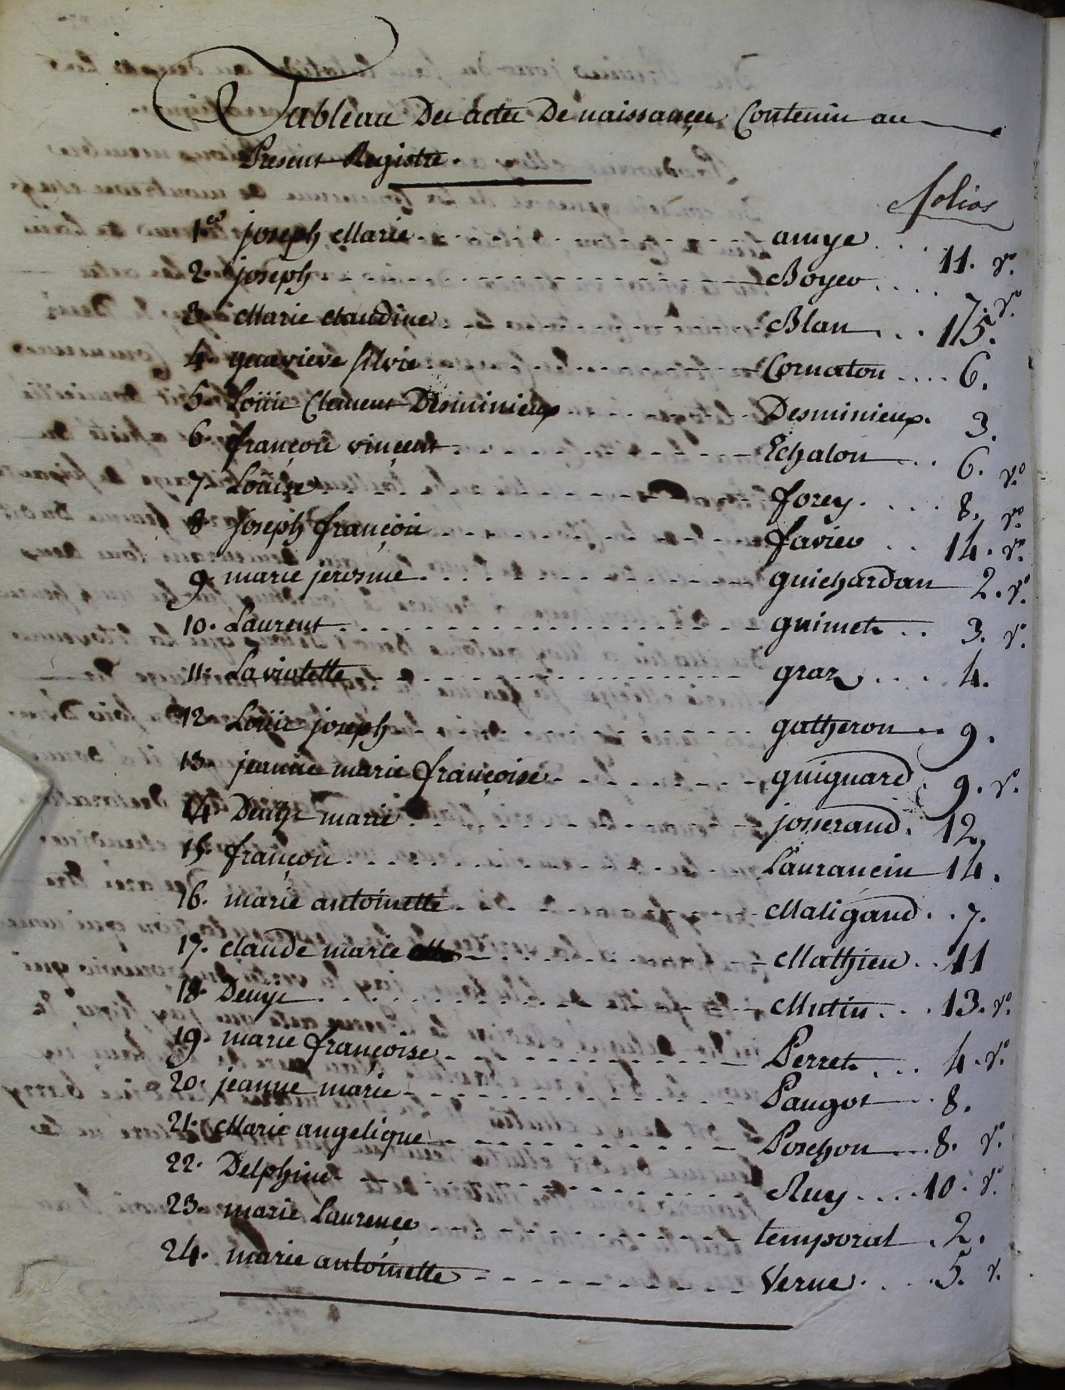 Tableau Des actes De naissances Contenus au
Present Registre.
folios
1er joseph Marie amye 11. v°.
2. joseph Boyer 7. v°
3. Marie claudine Blan 15.
4. genevieve silvie Cornaton 6.
5. Loüis Clement Desminieux Desminieux. 3.
6. françois vinçent Echalon 6. v°
7. Loüise forey. 8. v°
8. joseph françois favier 14. v°.
9. marie jerosme guichardan 2. v°.
10. Laurent guimet 3. v°
11. La violette graz 4.
12. Loüis joseph gatheron 9.
13. jeanne marie françoise guignard 9. v°.
14. Denise marie josserand. 12
15. françois Laurancin 14.
16. marie antoinette Maligand 7.
17. claude marie Mathieu 11
18. Denys Mutin 13. v°
19. marie françoise Perret 4. v°
20. jeanne marie Paugot 8.
21. Marie angelique Poschon 8. v°
22. Delphine Ruy 10. v°.
23. marie Laurençe temporal 2.
24. marie antoinette Verne 5. v.